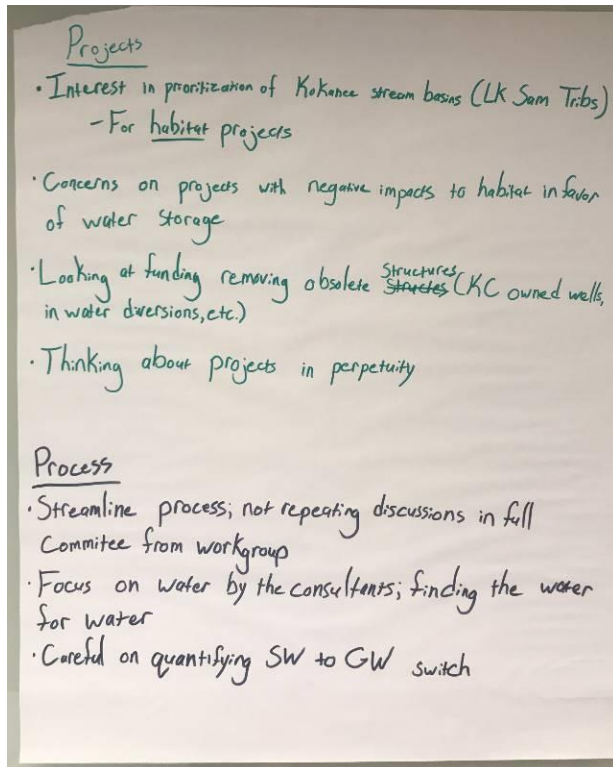 Projects
• Interest in prioritization of Kokanee stream basins (LK Sam Tribs)
- For habitat projects
• Concerns on projects with negative impacts to habitat in favor
of water storage
• Looking at funding removing obsolete Structures (KC owned wells,
in water diversions, etc.)
• Thinking about projects in perpetuity
Process
• Streamline process; not repeating discussions in full
Commitee from workgroup
• Focus on water by the consultants; finding the water
for water
• Careful on quantifying SW to GW switch